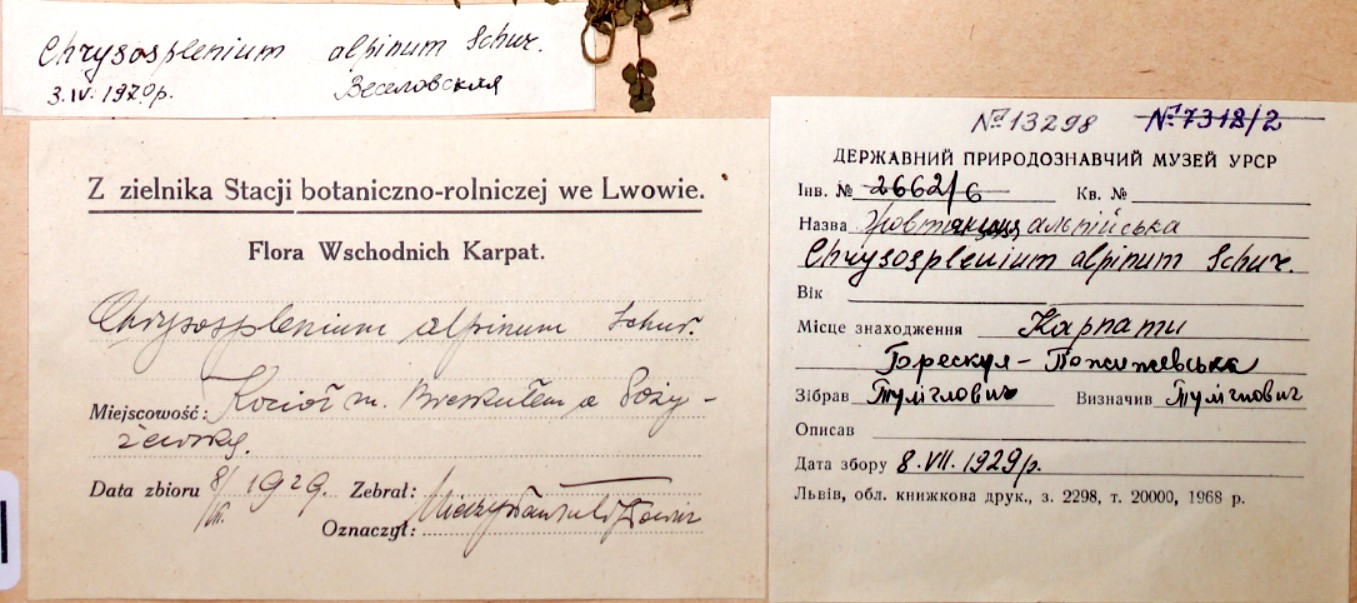 Chrysosplenium alpinum Schur.
3.IV.1970р. Веселовская
Z zielnika Stacji botaniczno-rolniczej we Lwowie.
Flora Wschodnich Karpat.
Chrysosplenium alpinum Schur.
Miejscowość: Kocioł m. Breskułem a Poży-
żewską.
Data zbioru 8/VII. 1929. Zebrał:
Oznaczył:
№ 13298 № 7312/2
ДЕРЖАВНИЙ ПРИРОДОЗНАВЧИЙ МУЗЕЙ УРСР
Інв. № 2662/6 Кв. №
Назва альпійська
Chrysosplenium alpinum Schur.
Вік
Місце знаходження Карпати
Брескул - Пожижевська
Зібрав Тулiглович Визначив Тулiглович
Описав
Дата збору 8.VII.1929р.
Львів, обл. книжкова друк., з. 2298, т. 20000, 1968 р.